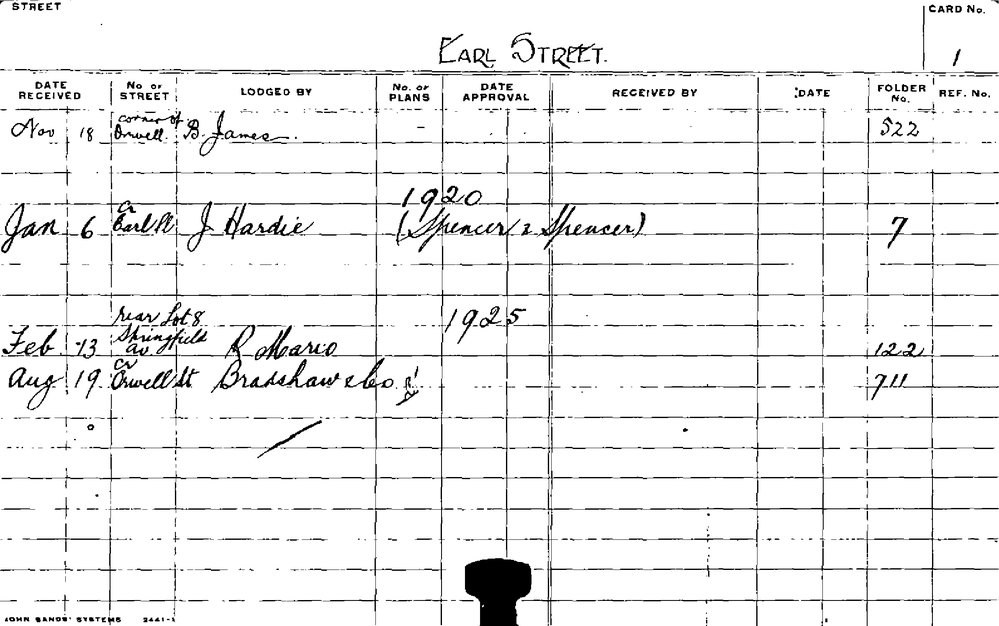 STREET CARD No.
EARL STREET. 1
DATE RECEIVED No OF STREET LODGED BY No. OF PLANS DATE APPROVAL RECEIVED BY DATE FOLDER No. REF. No.
Nov 18 corner of Orwell. B. James. 522
1920
Jan 6 Cr Earl Pl J Hardie (Spencer & Spencer) 7
1925
Feb 13 rear Lot 8 Springfield av R Mario 122
Aug 19 Cr Orwell St Bradshaw & Co 711
JOHN SANDS' SYSTEMS 2441-1